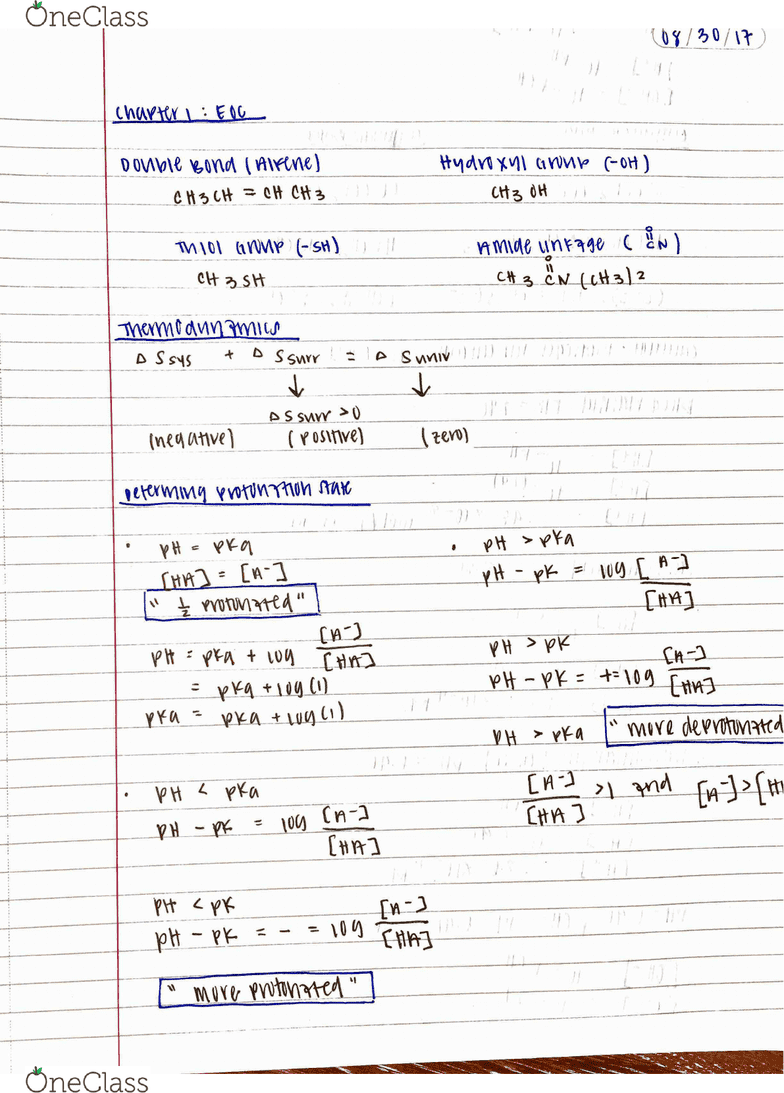 OneClass
08/30/17
Chapter 1 : EOC
Double Bond (Alkene)
CH3CH = CH CH3
Hydroxyl Group (-OH)
CH3 OH
Thiol Group (-SH)
CH3SH
Amide Linkage ( O
||
CN )
O
||
CH3 CN (CH3)2
Thermodynamics
Δ Ssys + Δ Ssurr = Δ Suniv
↓ ↓
Δ Ssurr > 0
(negative) (positive) (zero)
Determing protonation state
• pH = pKa
[HA] = [A-]
" 1/2 protonated"
pH = pKa + log [A-]/[HA]
= pKa + log(1)
pKa = pKa + log(1)
• pH > pKa
pH - pK = log [A-]/[HA]
pH > pK
pH - pK = + = log [A-]/[HA]
pH > pKa "more deprotonated
[A-]/[HA] >1 and [A-]>[H
• pH < pKa
pH - pK = log [A-]/[HA]
pH < pK
pH - pK = - = log [A-]/[HA]
" more protonated "
OneClass